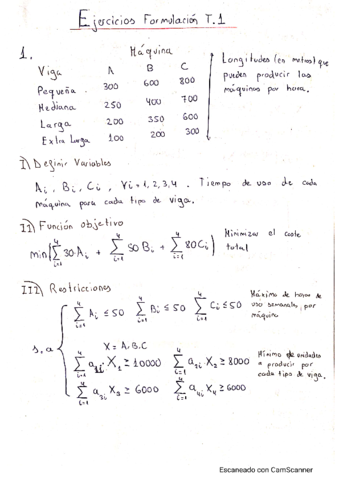 Ejercicios Formulación T.1
1.
Máquina
Viga A B C
Pequeña 300 600 800
Mediana 250 400 700
Larga 200 350 600
Extra Larga 100 200 300
Longitudes (en metros) que
pueden producir las
máquinas por hora.
I) Definir Variables
Ai, Bi, Ci, ∀i = 1, 2, 3, 4. Tiempo de uso de cada
máquina para cada tipo de viga.
II) Función objetivo
min[∑_{i=1}^{4} 30Ai + ∑_{i=1}^{4} 50Bi + ∑_{i=1}^{4} 80Ci]
Minimizar el coste
total
III) Restricciones
s.a {
∑_{i=1}^{4} Ai ≤ 50 ∑_{i=1}^{4} Bi ≤ 50 ∑_{i=1}^{4} Ci ≤ 50
Máximo de horas de
uso semanales, por
máquina
X = A, B, C
∑_{i=1}^{4} a1i X1 ≥ 10000 ∑_{i=1}^{4} a2i X2 ≥ 8000
∑_{i=1}^{4} a3i X3 ≥ 6000 ∑_{i=1}^{4} a4i X4 ≥ 6000
Mínimo de unidades
a producir por
cada tipo de viga.
Escaneado con CamScanner